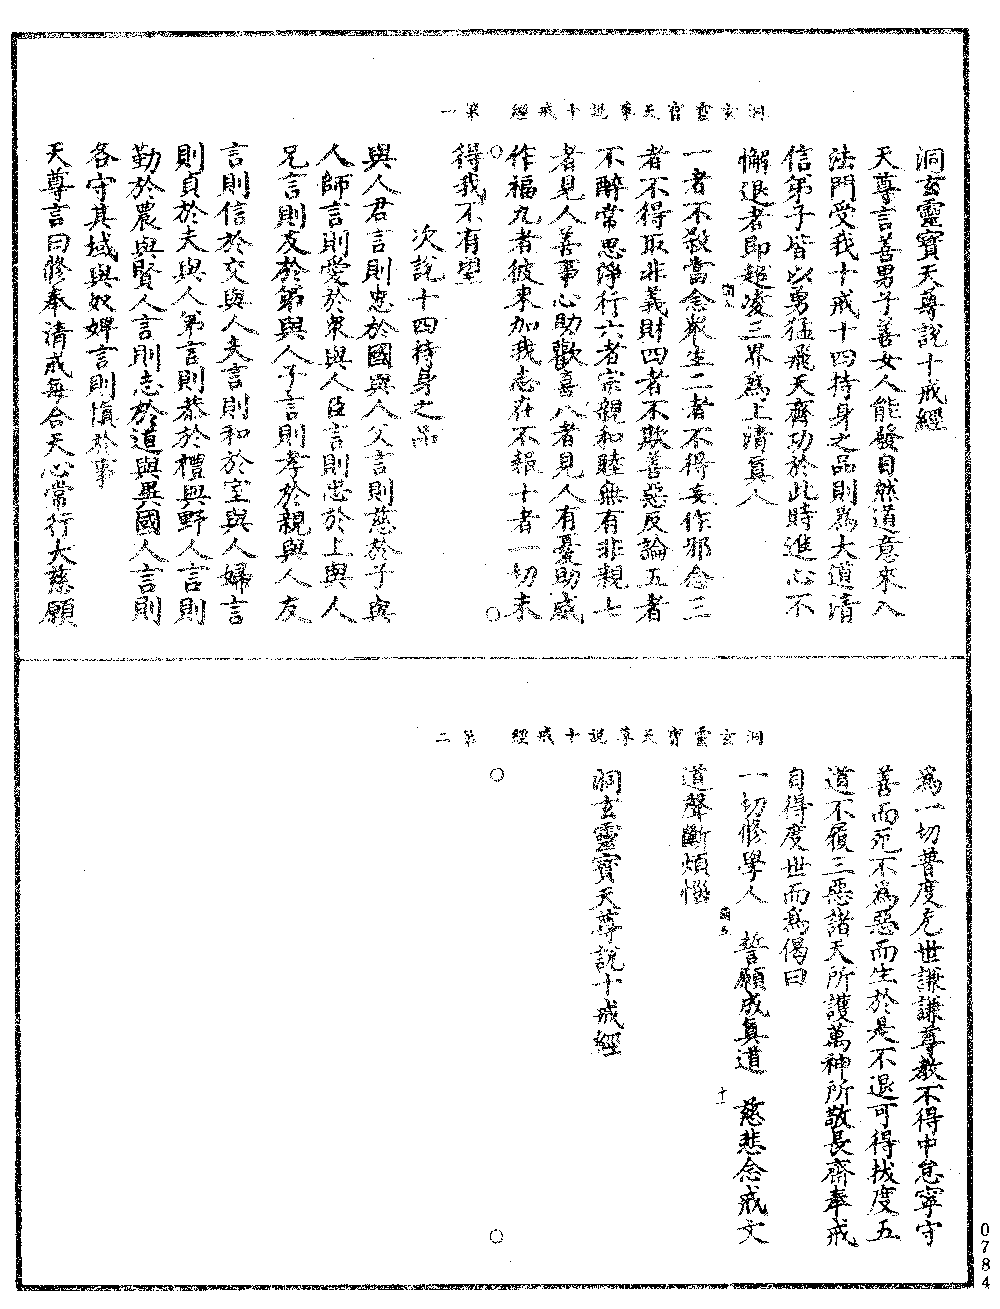 洞玄靈寶天尊說十戒經　第一
洞玄靈寶天尊說十戒經
天尊言善男子善女人能發自然道意來入
法門受我十戒十四持身之品則爲大道清
信弟子皆以勇猛飛天齊功於此時進心不
懈退者即超凌三界爲上清真人
一者不殺當念衆生二者不得妄作邪念三
者不得取非義財四者不欺善惡反論五者
不醉常思淨行六者宗親和睦無有非親七
者見人善事心助歡喜八者見人有憂助爲
作福九者彼來加我志在不報十者一切未
得我不有望
次說十四持身之品
與人君言則忠於國與人父言則慈於子與
人師言則愛於衆與人臣言則忠於上與人
兄言則友於弟與人子言則孝於親與人友
言則信於交與人夫言則和於室與人婦言
則貞於夫與人弟言則恭於禮與野人言則
勤於農與賢人言則志於道與異國人言則
各守其域與奴婢言則慎於事
天尊言曰修奉清戒每合天心常行大慈願
洞玄靈寶天尊說十戒經　第二
爲一切普度厄世謙謙尊教不得中怠寧守
善而死不爲惡而生於是不退可得拔度五
道不履三惡諸天所護萬神所敬長齋奉戒
自得度世而爲偈曰
一切修學人　誓願成真道　慈悲念戒文
道聲斷煩惱
十一
洞玄靈寶天尊說十戒經
0784